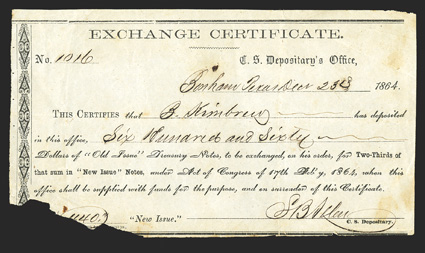 EXCHANGE CERTIFICATE.
No. 1016 C. S. Depositary's Office,
Bonham Texas Decr 23d 1864.
THIS CERTIFIES that B. Kimbrew has deposited
in this office, Six Hundred and Sixty
Dollars of "Old Issue" Treasury Notes, to be exchanged, on his order, for Two-Thirds of
that sum in "New Issue" Notes, under Act of Congress of 17th Feb'y, 1864, when this
office shall be supplied with funds for the purpose, and on surrender of this Certificate.
"New Issue." S B Allen
C. S. Depositary.